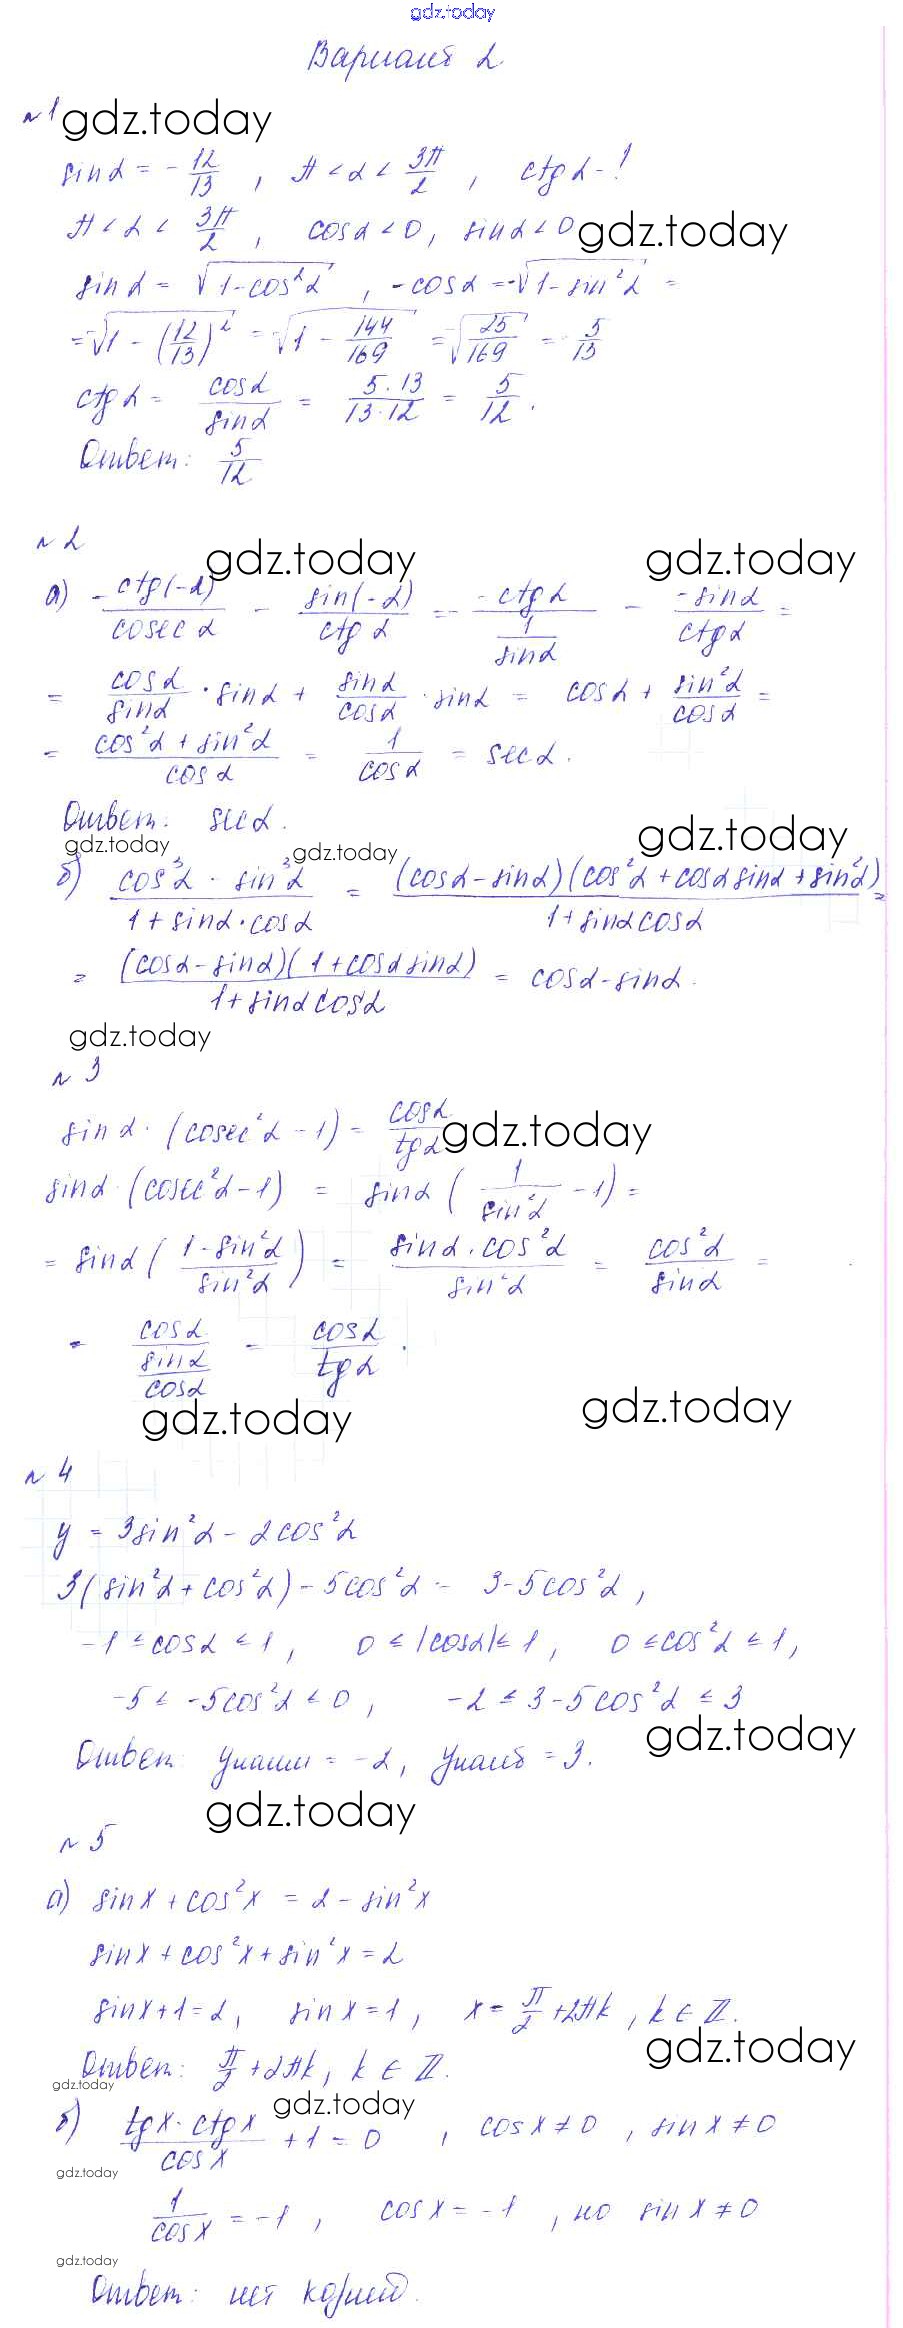 gdz.today
Вариант 2
№1 gdz.today
sinα = -12/13, π < α < 3π/2, ctgα - !
π < α < 3π/2, cosα < 0, sinα < 0 gdz.today
sinα = √(1-cos²α), -cosα = -√(1-sin²α) =
= -√(1 - (12/13)²) = -√(1 - 144/169) = -√(25/169) = -5/13
ctgα = cosα/sinα = 5·13/13·12 = 5/12.
Ответ: 5/12
№2
gdz.today gdz.today
а) -ctg(-α)/cosecα - sin(-α)/ctgα = -ctgα/(1/sinα) - -sinα/ctgα =
= cosα/sinα · sinα + sinα/cosα · sinα = cosα + sin²α/cosα =
= (cos²α + sin²α)/cosα = 1/cosα = secα.
Ответ: secα.
gdz.today gdz.today gdz.today
б) (cos³α - sin³α)/(1 + sinα·cosα) = (cosα - sinα)(cos²α + cosα sinα + sin²α)/(1 + sinα cosα) =
= (cosα - sinα)(1 + cosα sinα)/(1 + sinα cosα) = cosα - sinα.
gdz.today
№3
sinα · (cosec²α - 1) = cosα/tgα gdz.today
sinα · (cosec²α - 1) = sinα (1/sin²α - 1) =
= sinα ((1 - sin²α)/sin²α) = sinα · cos²α/sin²α = cos²α/sinα =
= cosα/(sinα/cosα) = cosα/tgα.
gdz.today gdz.today
№4
y = 3sin²α - 2cos²α
3(sin²α + cos²α) - 5cos²α = 3 - 5cos²α,
-1 ≤ cosα ≤ 1, 0 ≤ |cosα| ≤ 1, 0 ≤ cos²α ≤ 1,
-5 ≤ -5cos²α ≤ 0, -2 ≤ 3 - 5cos²α ≤ 3
gdz.today
Ответ: yнаим = -2, yнаиб = 3.
gdz.today
№5
а) sinx + cos²x = 2 - sin²x
sinx + cos²x + sin²x = 2
sinx + 1 = 2, sinx = 1, x = π/2 + 2πk, k ∈ Z.
gdz.today
Ответ: π/2 + 2πk, k ∈ Z.
gdz.today gdz.today
б) tgx · ctgx/cosx + 1 = 0, cosx ≠ 0, sinx ≠ 0
gdz.today
1/cosx = -1, cosx = -1, но sinx ≠ 0
gdz.today
Ответ: нет корней.